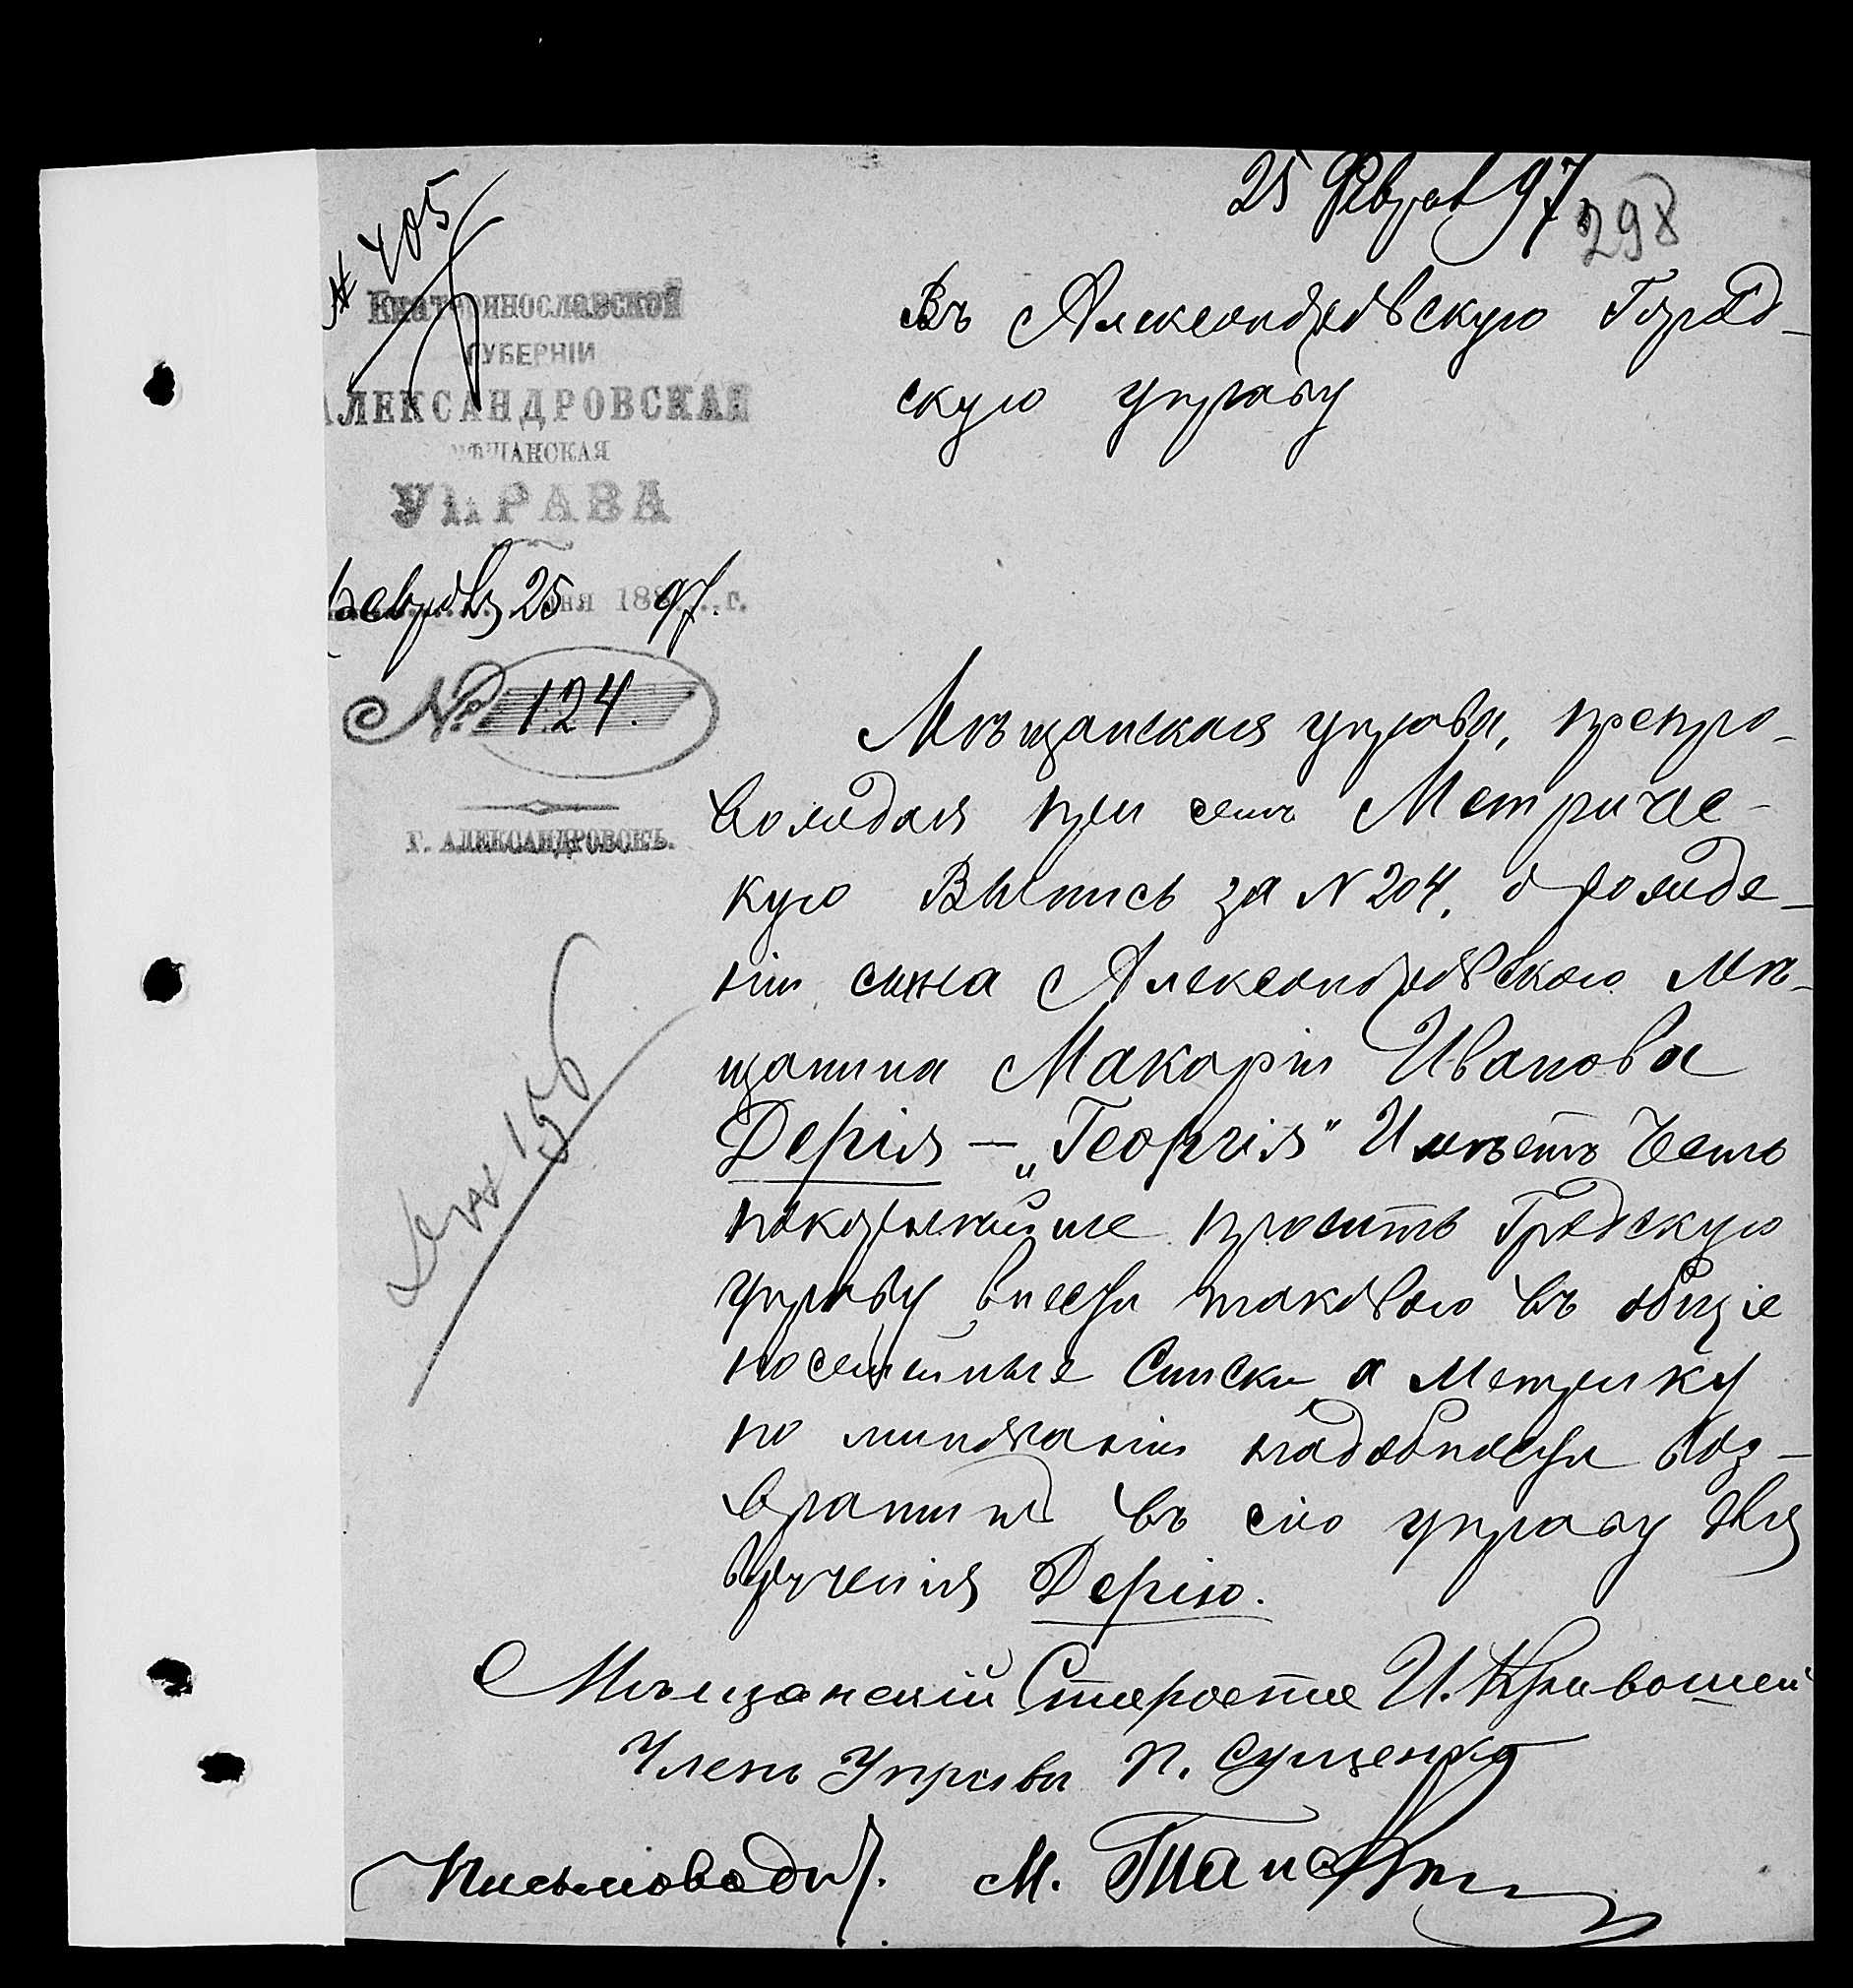 25 Феврал 97
298
№ 405
Екатеринославской
ГУБЕРНІИ
АЛЕКСАНДРОВСКАЯ
МѢЩАНСКАЯ
УПРАВА
Февраля 25 дня 188 97 г.
№ 124.
Г. АЛЕКСАНДРОВСКЪ.
Въ Александровскую Город-
скую управу
Мѣщанская управа, препро-
вождая при семъМетриче-
кую Выпись за N 204. о рожде-
ніи сына Александровского Мѣ-
щанина Макарія Иванова
Дерія — „Георгія" Имѣетъ Честь
покорнѣйше просить Градскую
управу внести таковаго въ общіе
посемейные Списки, а Метрику
по минованіи надобности воз-
вратить въ сію управу для
вручения Дерію.
156
Мѣщанскій Староста И. Кривошей
Членъ Управы П. Сущенко
Письмовод. М.